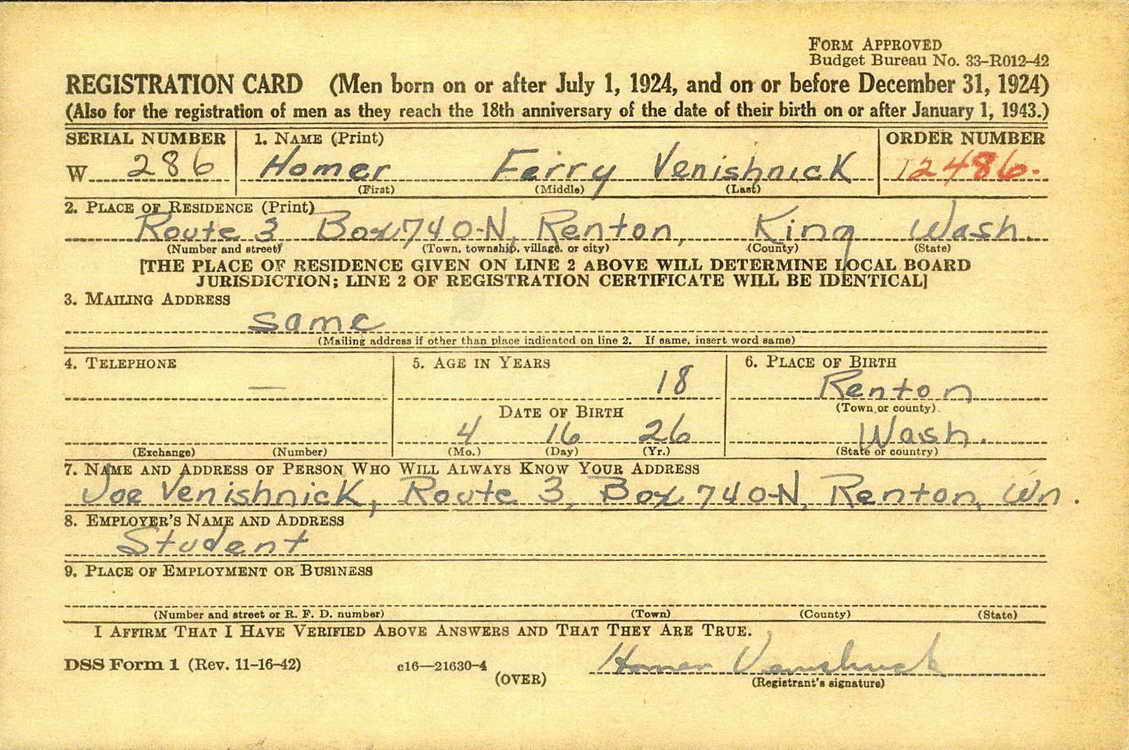 FORM APPROVED
Budget Bureau No. 33-R012-42
REGISTRATION CARD (Men born on or after July 1, 1924, and on or before December 31, 1924)
(Also for the registration of men as they reach the 18th anniversary of the date of their birth on or after January 1, 1943.)
SERIAL NUMBER 1. NAME (Print) ORDER NUMBER
W 286 Homer Ferry Venishnick 12486.
(First) (Middle) (Last)
2. PLACE OF RESIDENCE (Print)
Route 3 Box 740-N, Renton, King Wash.
(Number and street) (Town, township, village, or city) (County) (State)
[THE PLACE OF RESIDENCE GIVEN ON LINE 2 ABOVE WILL DETERMINE LOCAL BOARD
JURISDICTION; LINE 2 OF REGISTRATION CERTIFICATE WILL BE IDENTICAL]
3. MAILING ADDRESS
same
(Mailing address if other than place indicated on line 2. If same, insert word same)
4. TELEPHONE 5. AGE IN YEARS 6. PLACE OF BIRTH
— 18 Renton
DATE OF BIRTH (Town or county)
4 16 26 Wash.
(Exchange) (Number) (Mo.) (Day) (Yr.) (State or country)
7. NAME AND ADDRESS OF PERSON WHO WILL ALWAYS KNOW YOUR ADDRESS
Joe Venishnick, Route 3, Box 740-N, Renton, Wn.
8. EMPLOYER'S NAME AND ADDRESS
Student
9. PLACE OF EMPLOYMENT OR BUSINESS
(Number and street or R. F. D. number) (Town) (County) (State)
I AFFIRM THAT I HAVE VERIFIED ABOVE ANSWERS AND THAT THEY ARE TRUE.
DSS Form 1 (Rev. 11-16-42) c16—21630-4 Homer Venishnick
(OVER) (Registrant's signature)